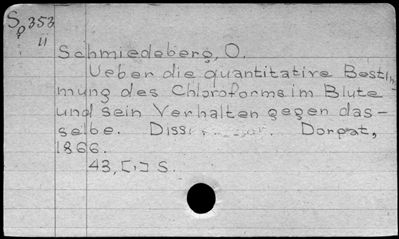 S 353
11
Schmiedeberg, O.
Ueber die quantitative Bestim-
mung des Chloroforms im Blute
und sein Verhalten gegen das-
selbe. Diss. Dorpat,
1866.
43, [1] S.